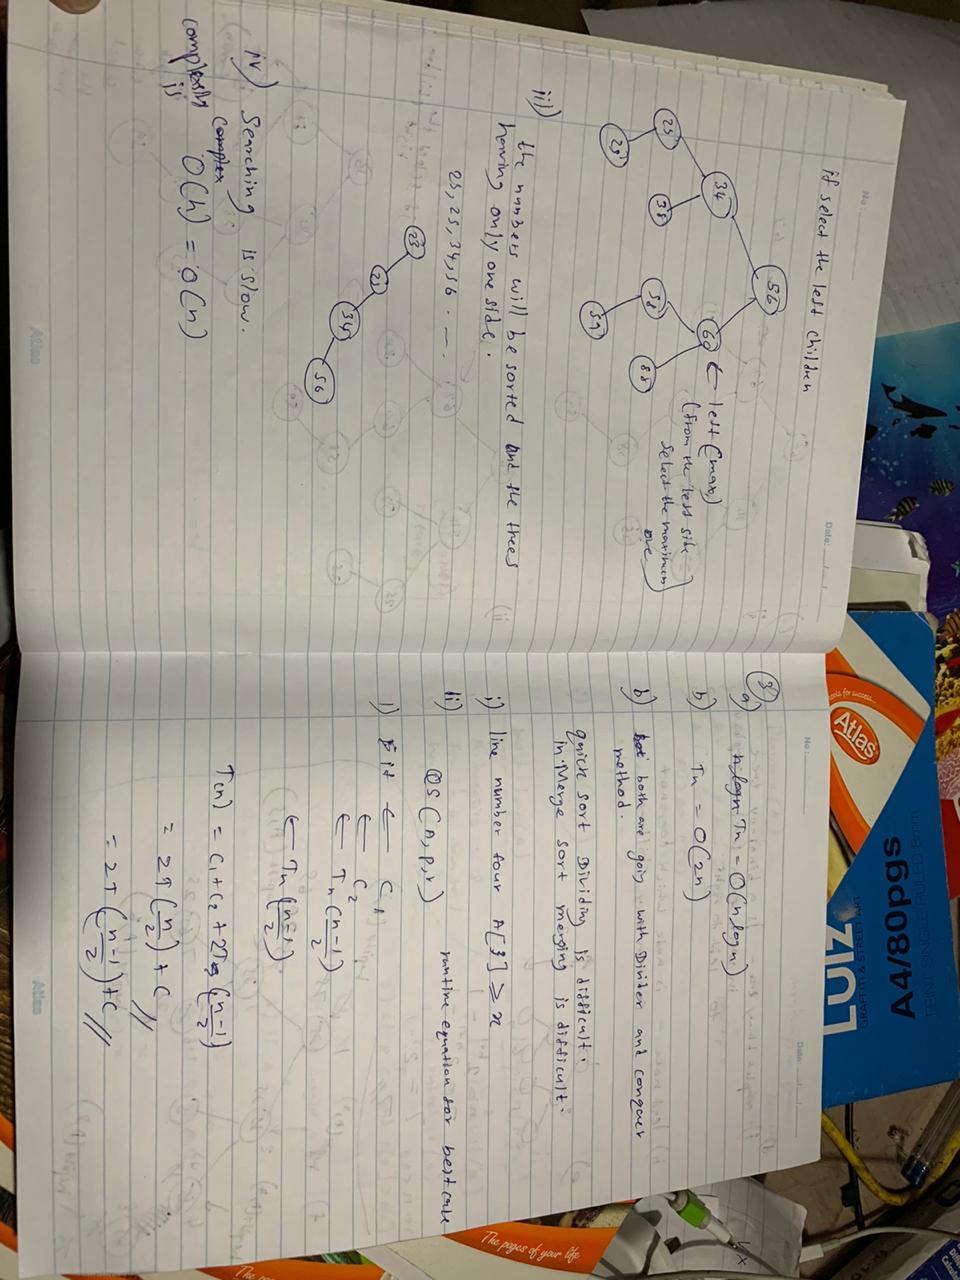 No:
if select the left children
56
34
60
← left (max)
(from the left side
select the maximum
one)
25
38
58
88
29
59
iii) the numbers will be sorted and the trees
having only one side.
23, 25, 34, 56 . — .
23
25
34
56
iv) Searching is slow.
complex
complexity is O(h) = O(n)
Atlas
Date:
No:
Date:
3
a) nlogn Tn = O(n logn)
b) Tn = O(2n)
b) both are going with Divider and conquer
method.
quick sort Dividing is difficult.
in Merge sort merging is difficult.
i) line number four A[j] ≥ x
ii) QS(A,p,r) runtime equation for best case
1) if ← C1
← C2
← Tn (n-1/2)
← Tn (n-1/2)
T(n) = C1 + C2 + 2T (n-1/2)
= 2T (n/2) + C //
= 2T (n-1/2) + C //
Atlas
Atlas
tools for success...
LUIZ
GRAFFITI & STREET ART
A4/80pgs
FEINT SINGLE RULED 8mm
The pages of your life
The pages of your life